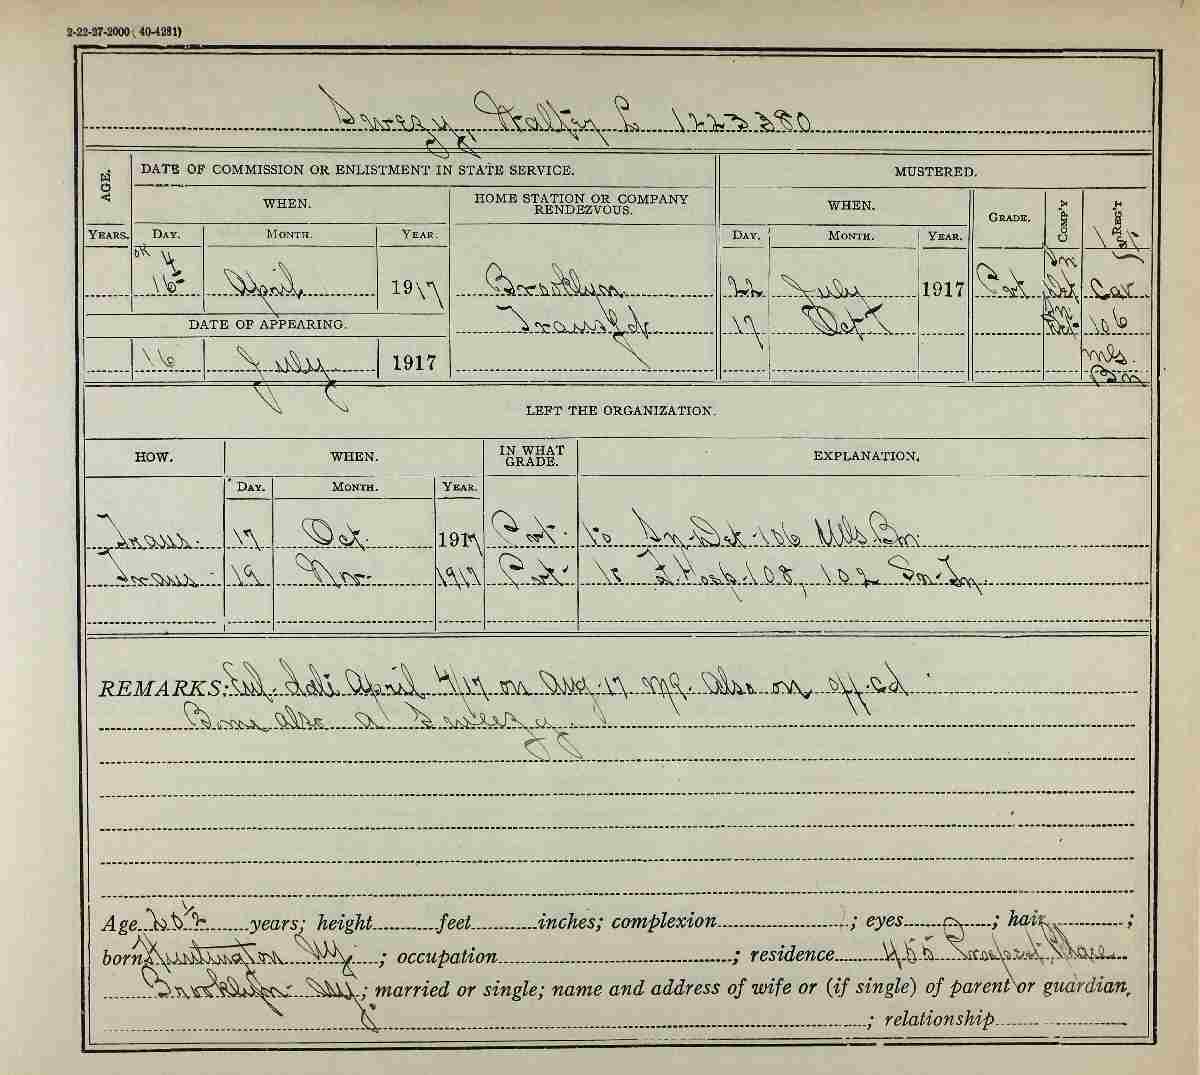 2-22-27-2000 (40-4281)
Swezy, Walter L 1223380
AGE. DATE OF COMMISSION OR ENLISTMENT IN STATE SERVICE. MUSTERED.
WHEN. HOME STATION OR COMPANY RENDEZVOUS. WHEN. GRADE. COMP'Y REG'T
YEARS. DAY. MONTH. YEAR. DAY. MONTH. YEAR.
OK 4
16 April 1917 Brooklyn 22 July 1917 Pvt Det Cav
DATE OF APPEARING. Transfd 17 Oct 106
16 July 1917 Mls.
Bn
LEFT THE ORGANIZATION.
HOW. WHEN. IN WHAT GRADE. EXPLANATION.
DAY. MONTH. YEAR.
Trans. 17 Oct. 1917 Pvt. to Sn. Det. 106 Mls. Bn.
Trans 19 Nov. 1917 Pvt to F. Hosp. 108, 102 Sn. Tn.
REMARKS: Enl. April 4/17 on Aug. 17 Also on off. cd
Borne also as Sweezy
Age 20 1/2 years; height feet inches; complexion ; eyes ; hair ;
born Huntington NY ; occupation ; residence 455 Prospect Place
Brooklyn NY.; married or single; name and address of wife or (if single) of parent or guardian,
; relationship